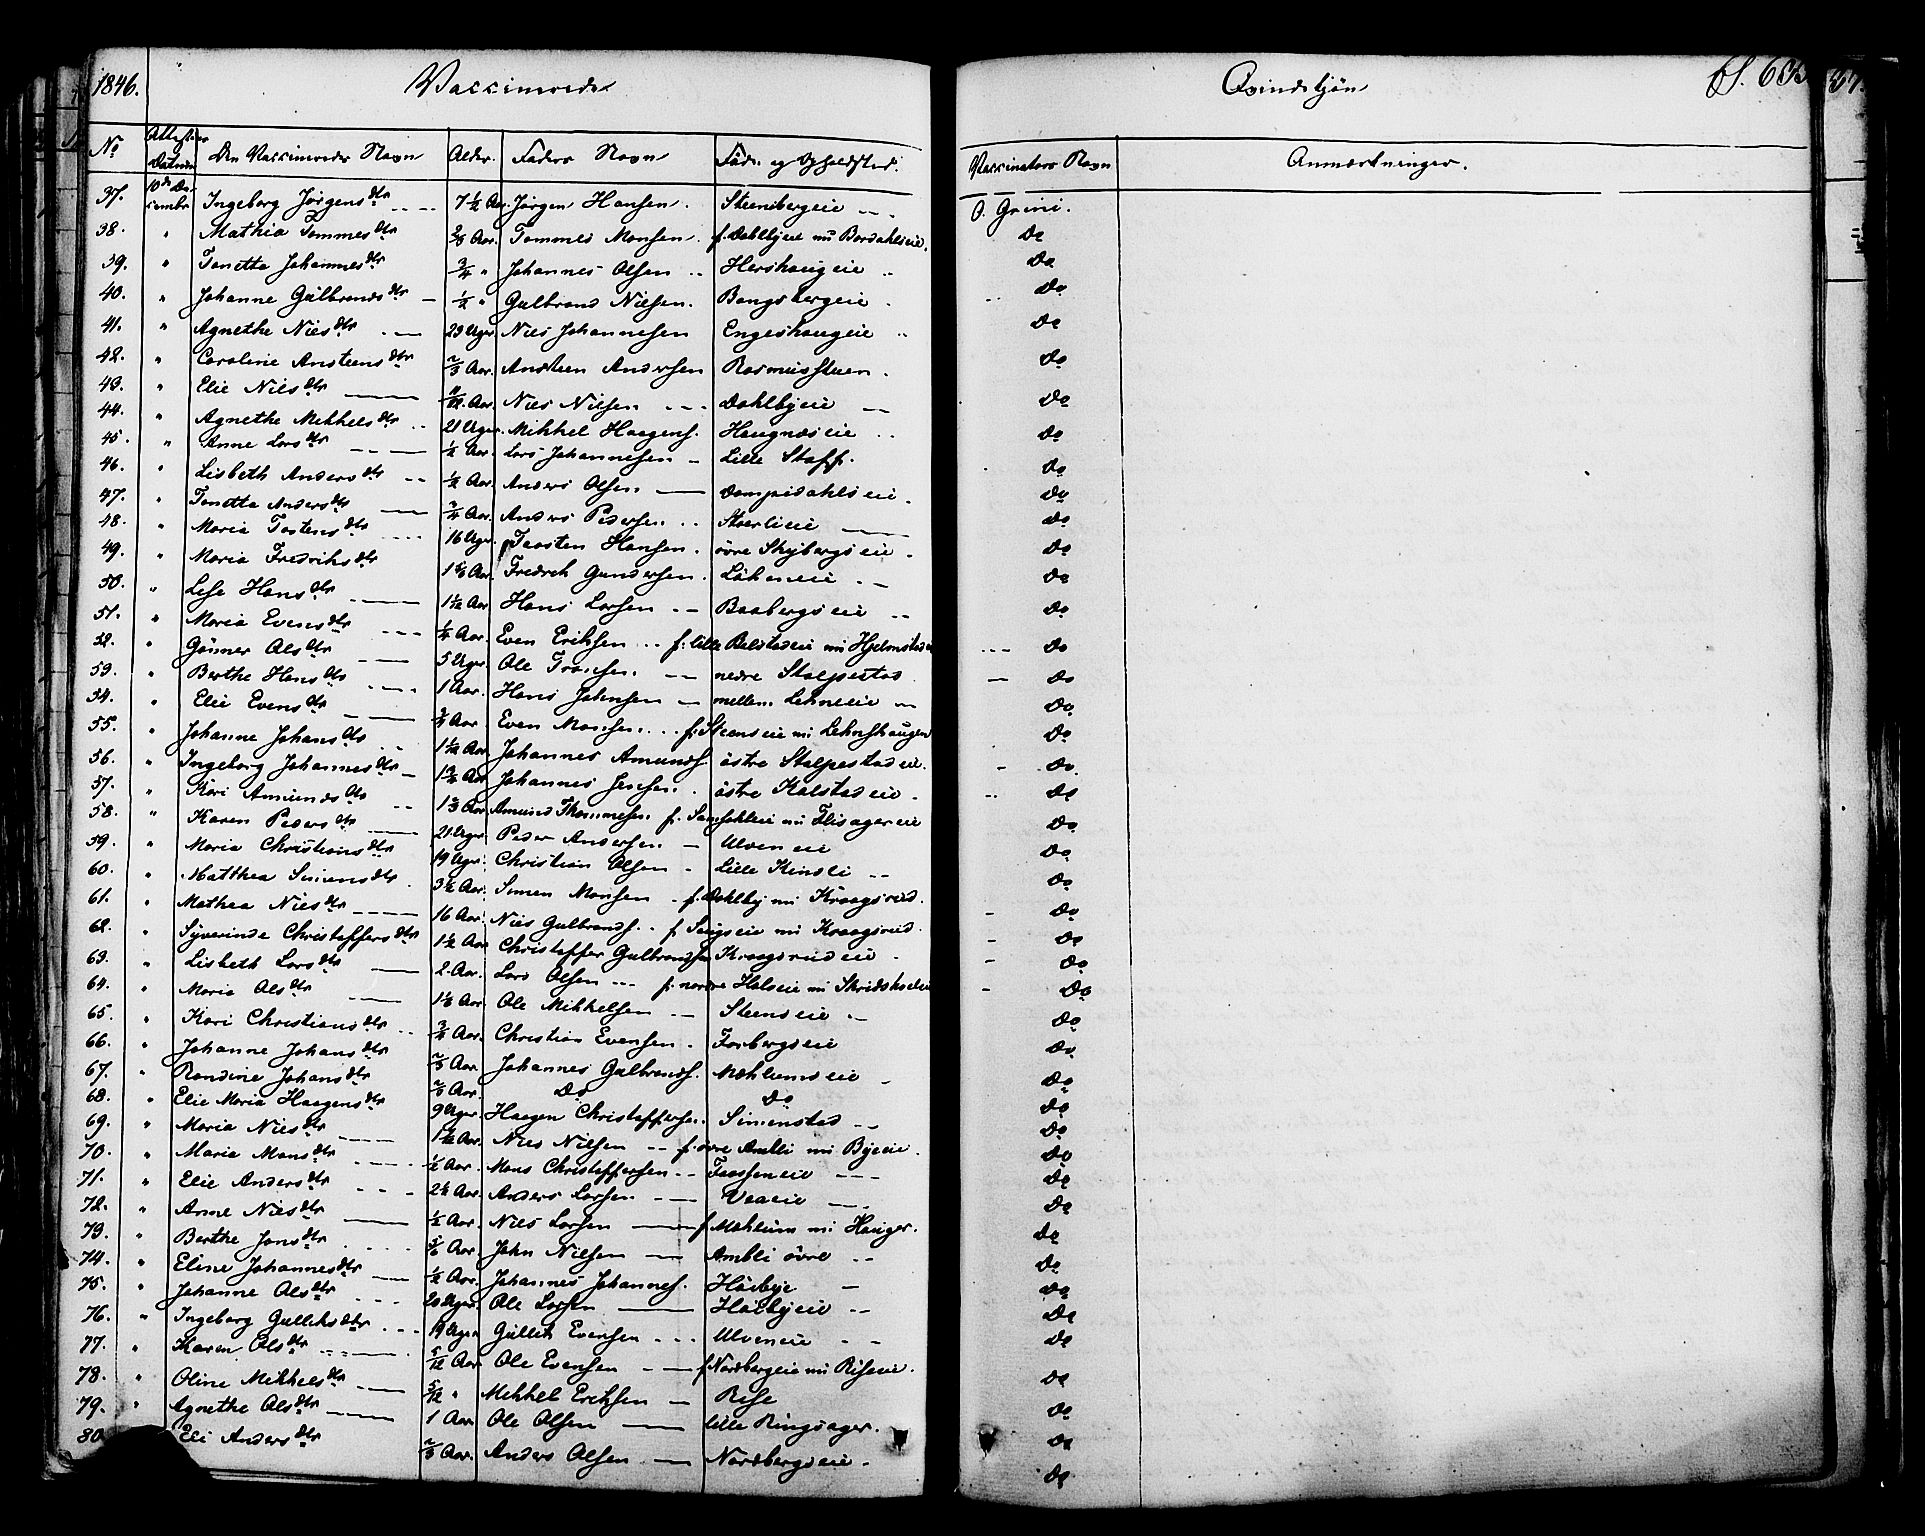 1846. Vaccinerede Qvindekjøn
No Attestens Datum Den Vaccineredes Navn Alder. Faders Navn Føde- og Opholdssted. Vaccinators Navn Anmærkninger.
37. 10de December Ingeborg Jørgensdtr 7½ Aar. Jørgen Hansen. Steensbergeie O. Grini.
38. " Mathia Tommesdtr Aar. Tommes Monsen. f. Dahlbyeie nu Bordahlseie. Do
39. " Tonetta Johannesdtr ¾ " Johannes Olsen Hershougeie Do
40. " Johanne Gulbrandsdtr ½ " Gulbrand Nielsen. Bangsbergeie. Do
41. " Agnethe Nilsdtr 23 Uger. Nils Johannesen Engeshougeie Do
42. " Caroline Anstensdtr ⅔ Aar. Ansteen Andersen Rasmusstuen. Do
43. " Elie Nilsdtr 11/12 Aar. Nils Nilsen Dahlbyeie Do
44. " Agnethe Mikkelsdtr 21 Uger. Mikkel Haagens. Haugnæseie Do
45. " Anne Larsdtr ½ Aar. Lars Johannesen Lille Staff. Do
46. " Lisbeth Andersdtr ½ Aar. Anders Olsen Dompidahlseie. Do
47. " Tonetta Andersdtr ¾ Aar. Anders Pedersen Stoerlieie Do
48. " Maria Tostensdtr 16 Uger. Taasten Hansen. øvre Skybergseie. Do
49. " Maria Fredriksdtr Aar. Fredrek Gundersen. Do
50. " Lise Hansdtr Aar Hans Larsen Baabergseie Do
51. " Maria Evensdtr Aar. Even Eriksen f. lille Belstadeie nu Hjelmstadeie Do
52. " Gønner Olsdtr 5 Uger Ole nedre Stalpestad Do
53. " Berthe Hansdtr 1 Aar. Hans Johnsen mellem Lehneeie Do
54. " Elie Evensdtr ¾ Aar Even Monsen f. Steenseie nu Lehnshaugen Do
55. " Johanne Johansdtr Aar. Johannes Amunds. østre Stalpestadeie. Do
56. " Ingeborg Johannesdtr Aar Johannes Jensen. østre Kalstadeie. Do
57. " Kari Amundsdtr 1⅔ Aar Amund Thommesen. f. nu Flisagereie Do
58. " Karen Pedersdtr 21 Uger. Peder Andersen Ulveneie Do
59. " Maria Christiansdtr 19 Uger. Christian Olsen Lille Kindli Do
60. " Matthea Simensdtr 3½ Aar. Simen Monsen f. Dahlby nu Kraagsrud. Do
61. " Mathea Nilsdtr 16 Aar. Nils Gulbrands. f. Saugseie nu Kraagsrud. Do
62. " Syverinde Christoffersdtr 1½ Aar Christoffer Gulbrandsen Kraagsrudeie Do
63. " Lisbeth Larsdtr 2. Aar. Lars Olsen f. nordre Halseie nu Do
64. " Maria Olsdtr Aar. Ole Mikkelsen Steenseie Do
65. " Kari Christiansdtr ¾ Aar. Christian Evensen. Farbergseie Do
66. " Johanne Johansdtr ⅔ Aar. Johannes Gulbrands. Mæhlumseie Do
67. " Randine Johansdtr ⅔ Aar. Do Do Do
68. " Elie Maria Haagensdtr 9 Uger. Haagen Christoffersen. Simenstad Do
69. " Maria Nilsdtr Aar. Nils Nilsen f. øvre Ambli nu Byeeie. Do
70. " Maria Monsdtr ½ Aar. Mons Christoffersen Taasseneie Do
71. " Elie Andersdtr 2½ Aar. Anders Larsen Veaeie Do
72. " Anne Nilsdtr ½ Aar. Nils Larsen f. Mæhlum nu Hauger. Do
73. " Berthe Jonsdtr Aar. John Nilsen Ambli øvre Do
74. " Eline Johannesdtr ½ Aar. Johannes Johannes. Høibye Do
75. " Johanne Olsdtr 20 Uger. Ole Larsen Høibyeie Do
76. " Ingeborg Gulliksdtr 19 Uger Gullik Evensen Ulveneie Do
77. " Karen Olsdtr Aar. Ole Evensen f. Nordbergeie nu Riseeie. Do
78. " Oline Mikkelsdtr 5/12 " Mikkel Eriksen Rise Do
79. " Agnethe Olsdtr 1 Aar Ole Olsen lille Ringsager. Do
80 Eli Andersdtr ⅔ Aar. Anders Olsen Nordbergseie. Do